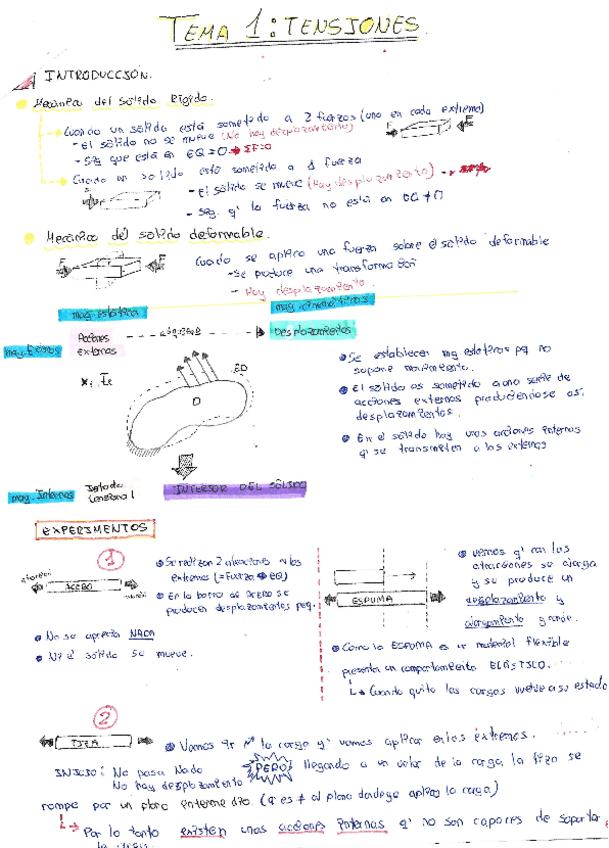 TEMA 1: TENSIONES.
INTRODUCCIÓN.
Mecánica del sólido Rígido.
Cuando un sólido está sometido a 2 fuerzas (una en cada extremo)
- El sólido no se mueve (No hay desplazamiento)
- Sig que está en EQ=0 → ΣF=0
F F
Cuando un sólido está sometido a 1 fuerza
- El sólido se mueve (Hay desplazamiento)
- Sig. q' la fuerza no está en EQ ≠ 0
Mecánica del sólido deformable.
F F
Cuando se aplica una fuerza sobre el sólido deformable
- Se produce una transformación
- Hay desplazamiento.
mag. estática
mag. cinemáticas
mag. Externas
Acciones externas
Desplazamientos
D
Se establecen mg estáticas pq no
supone movimiento.
El sólido es sometido a una serie de
acciones externas produciéndose así
desplazamientos.
En el sólido hay unas acciones internas
q' se transmiten a las externas
mag. Internas
Estado tensional
INTERIOR DEL SÓLIDO
EXPERIMENTOS
1
ACERO
Se realizan 2 atracciones a los
extremos (= Fuerza → EQ)
En la barra de acero se
producen desplazamientos peq.
No se aprecia NADA
Ni el sólido se mueve.
ESPUMA
vemos q' con las
atracciones se alarga
y se produce un
desplazamiento y
alargamiento grande.
Como la ESPUMA es un material flexible
presenta un comportamiento ELÁSTICO.
↳ Cuando quito las cargas vuelve a su estado
2
TIZA
Vamos ↑r Nº la carga q' vamos aplicar en los extremos.
INICIO: No pasa Nada
No hay desplazamiento
PERO
llegando a un valor de la carga la tiza se
rompe por un plano intermedio. (q' es ≠ al plano donde ge aplico la carga)
↳ Por lo tanto existen unas acciones internas q' no son capaces de soportar